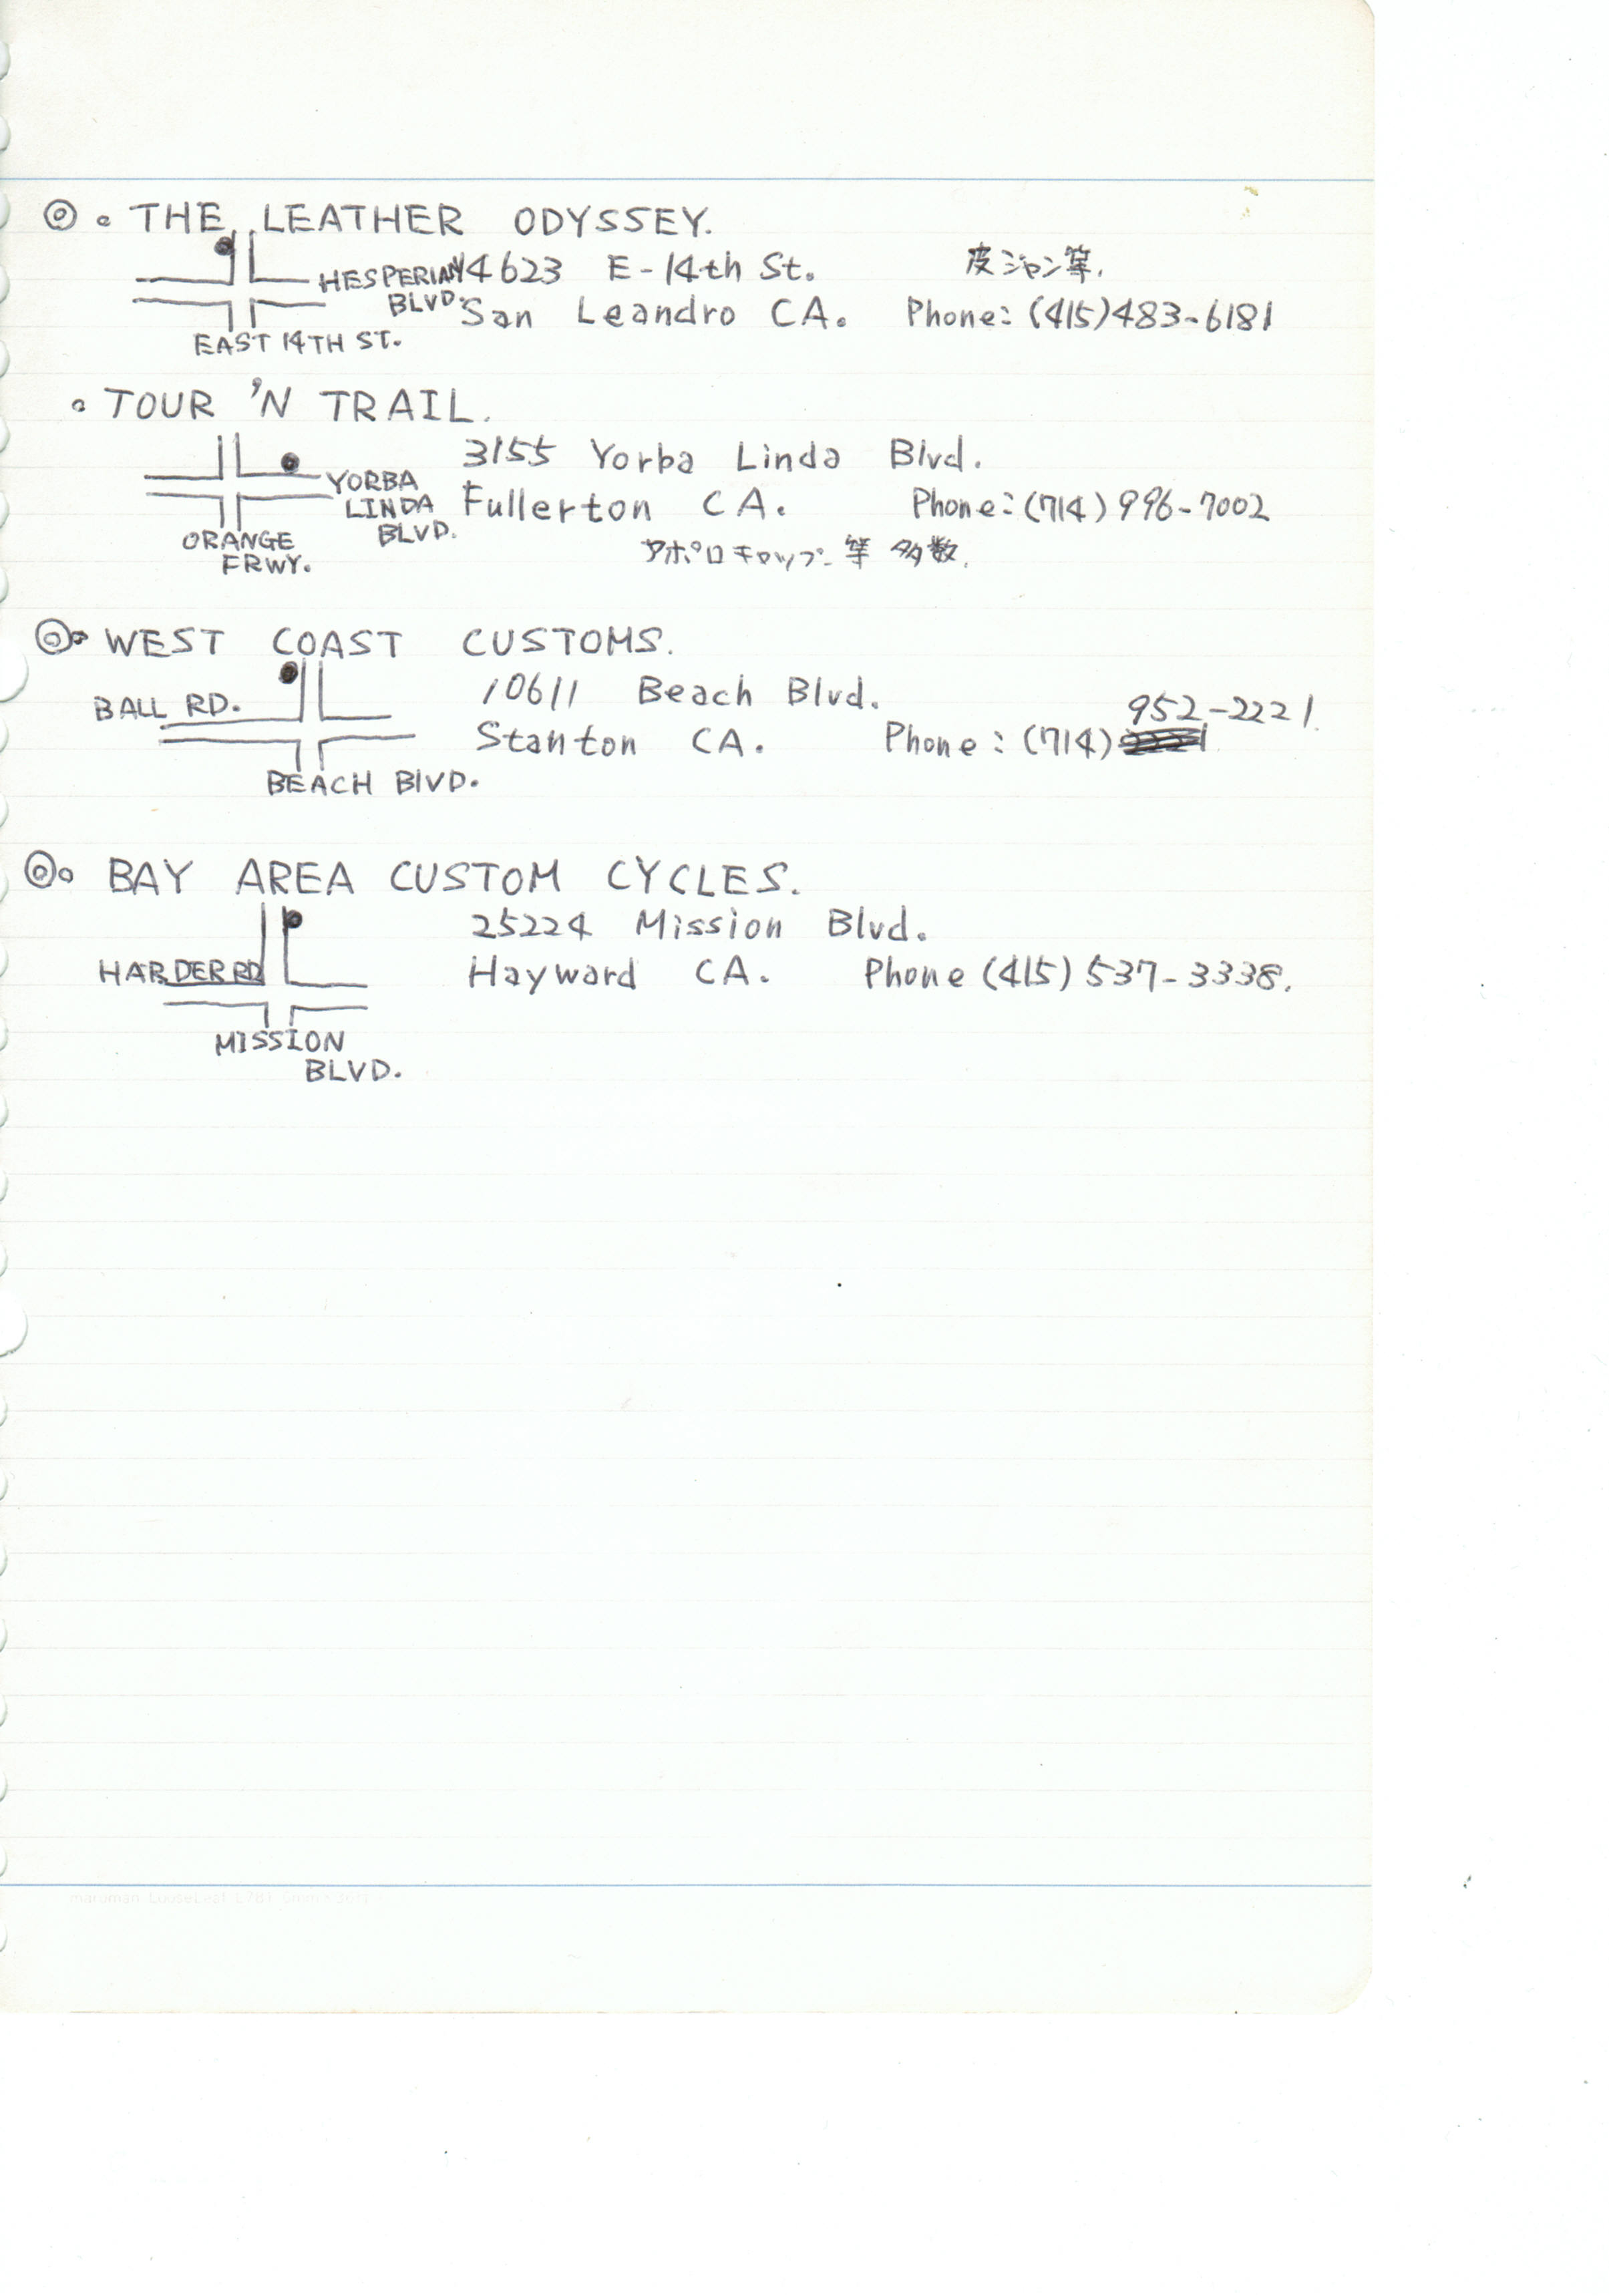 ◎ ◦ THE LEATHER ODYSSEY.
14623 E-14th St. 皮ジャン等.
HESPERIAN
BLVD.
San Leandro CA. Phone: (415)483-6181
EAST 14TH ST.
◦ TOUR 'N TRAIL.
3155 Yorba Linda Blvd.
YORBA
LINDA
BLVD.
Fullerton CA. Phone: (714) 996-7002
ORANGE
FRWY.
アポロキャップ等 多数.
◎ ◦ WEST COAST CUSTOMS.
10611 Beach Blvd.
BALL RD.
Stanton CA. Phone: (714) 952-2221.
BEACH BlVD.
◎ ◦ BAY AREA CUSTOM CYCLES.
25224 Mission Blvd.
HARDER RD
Hayward CA. Phone (415) 537-3338.
MISSION
BLVD.